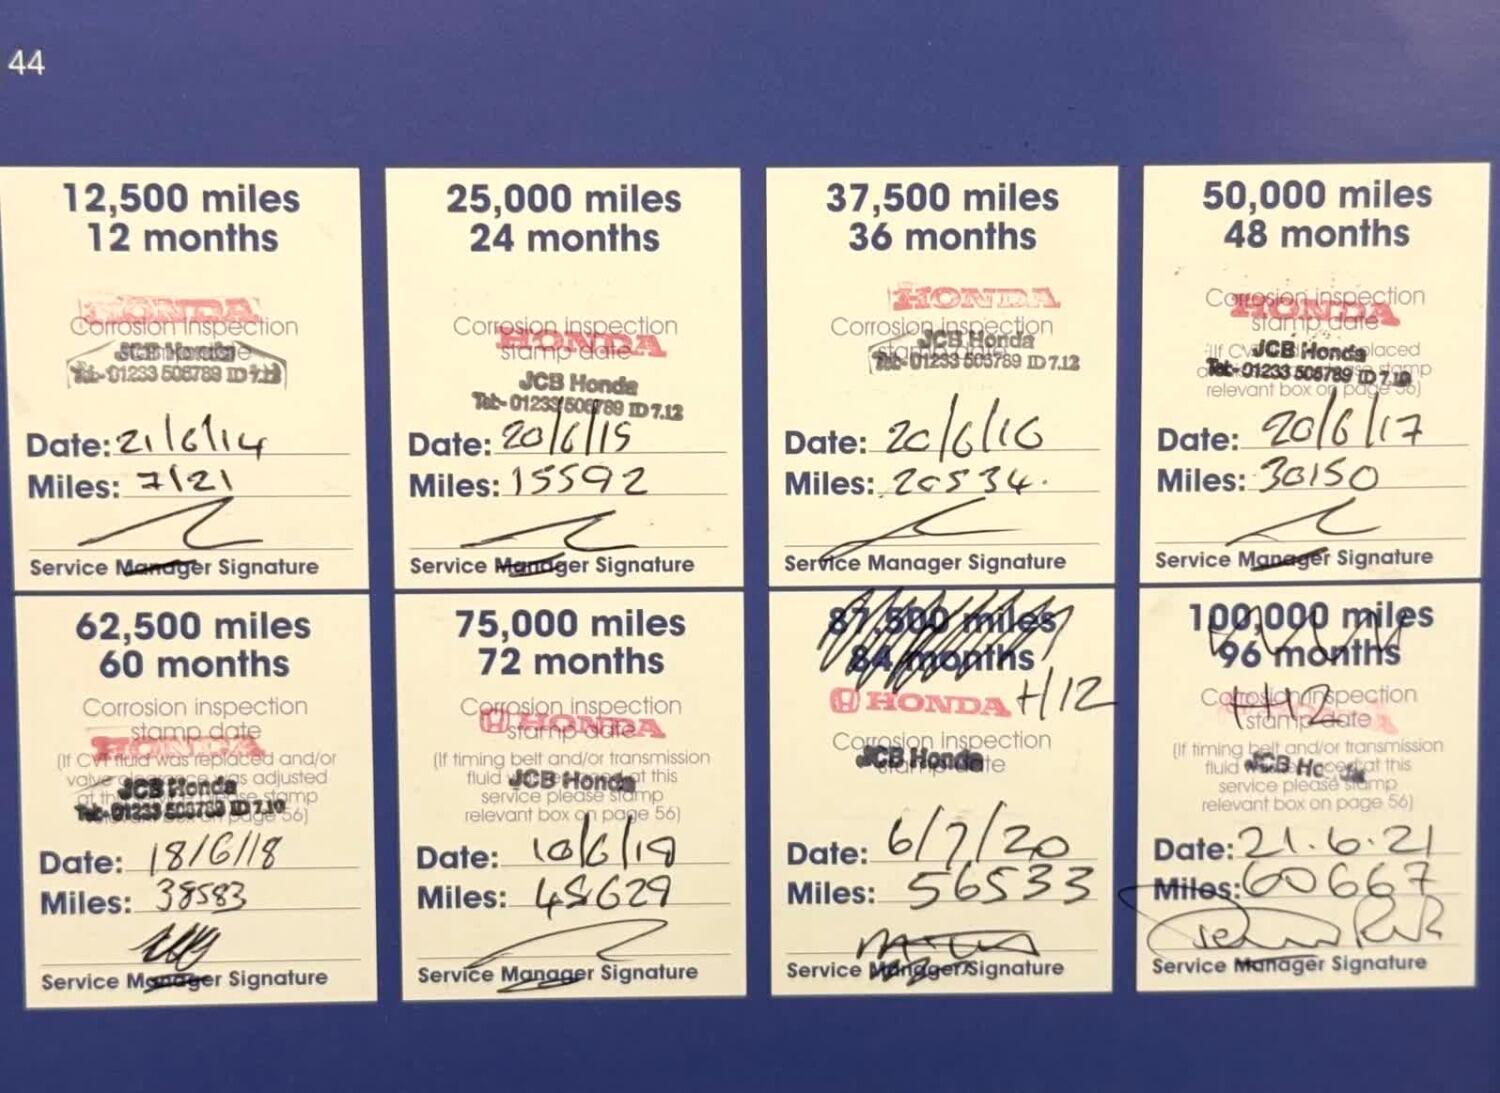 44
12,500 miles
12 months
HONDA
Corrosion inspection
JCB Honda
Tel:- 01233 506789 ID 7.12
Date: 21/6/14
Miles: 7121
Service Manager Signature
25,000 miles
24 months
Corrosion inspection
HONDA
stamp date
JCB Honda
Tel:- 01233 506789 ID 7.12
Date: 20/6/15
Miles: 15592
Service Manager Signature
37,500 miles
36 months
HONDA
Corrosion inspection
stamp date
JCB Honda
Tel:- 01233 506789 ID 7.12
Date: 20/6/16
Miles: 20534.
Service Manager Signature
50,000 miles
48 months
Corrosion inspection
HONDA
stamp date
JCB Honda
Tel:- 01233 506789 ID 7.10
relevant box on page 56)
Date: 20/6/17
Miles: 30150
Service Manager Signature
62,500 miles
60 months
Corrosion inspection
stamp date
HONDA
(If CVT fluid was replaced and/or
valve clearance was adjusted
JCB Honda
at this service please stamp
Tel:- 01233 506789 ID 7.10
relevant box on page 56)
Date: 18/6/18
Miles: 38583
Service Manager Signature
75,000 miles
72 months
Corrosion inspection
HONDA
stamp date
(If timing belt and/or transmission
fluid at this
JCB Honda
service please stamp
relevant box on page 56)
Date: 10/6/19
Miles: 48629
Service Manager Signature
87,500 miles
84 months
HONDA H/12
Corrosion inspection
JCB Honda
stamp date
Date: 6/7/20
Miles: 56533
Service Manager Signature
100,000 miles
96 months
Corrosion inspection
stamp date
(If timing belt and/or transmission
fluid at this
service please stamp
relevant box on page 56)
Date: 21.6.21
Miles: 60667
Service Manager Signature